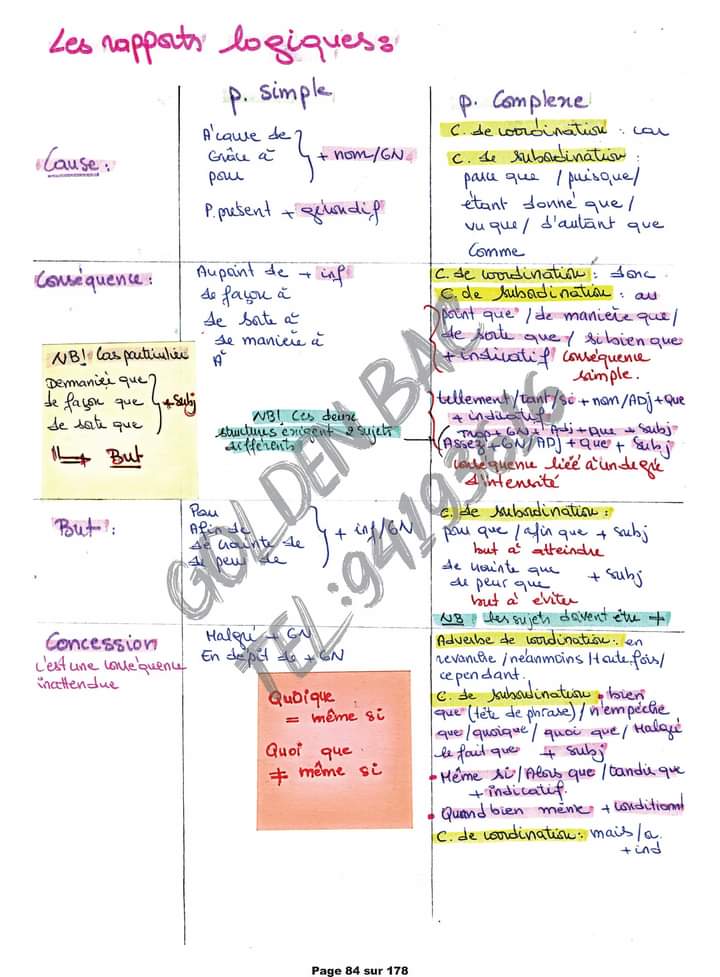 Les rapports logiques :
p. simple
p. complexe
Cause :
À cause de
Grâce à
pour
+ nom/GN
P. présent + gérondif
C. de coordination : car
C. de subordination :
parce que / puisque /
étant donné que /
vu que / d'autant que
Comme
Conséquence :
Au point de + inf
de façon à
de sorte à
de manière à
A
C. de coordination : donc
C. de subordination : au
point que / de manière que /
de sorte que / si bien que
+ indicatif conséquence
simple.
tellement / tant / si + nom/Adj + que
+ indicatif
Trop + GN + Adj + Que + Subj
Assez + GN/ADJ + que + Subj
conséquence liée à un degré
d'intensité
NB! Cas particulier
De manière que
de façon que
de sorte que
+ Subj
But
NB! Ces deux
structures exigent 2 sujets
différents
But :
Pour
Afin de
de crainte de
de peur de
+ inf/GN
C. de subordination :
pour que / afin que + subj
but à atteindre
de crainte que
de peur que
+ subj
but à éviter
NB les sujets doivent être ≠
Concession
c'est une conséquence
inattendue
Malgré + GN
En dépit de + GN
Quoique
= même si
Quoi que
≠ même si
Adverbe de coordination : en
revanche / néanmoins / toute fois /
cependant.
C. de subordination • bien
que (tête de phrase) / n'empêche
que / quoique / quoi que / Malgré
le fait que + subj
• Même si / Alors que / tandis que
+ indicatif.
• Quand bien même + conditionnel
C. de coordination : mais / or
+ ind
GOLDEN BAC
TEL : 94193616
Page 84 sur 178